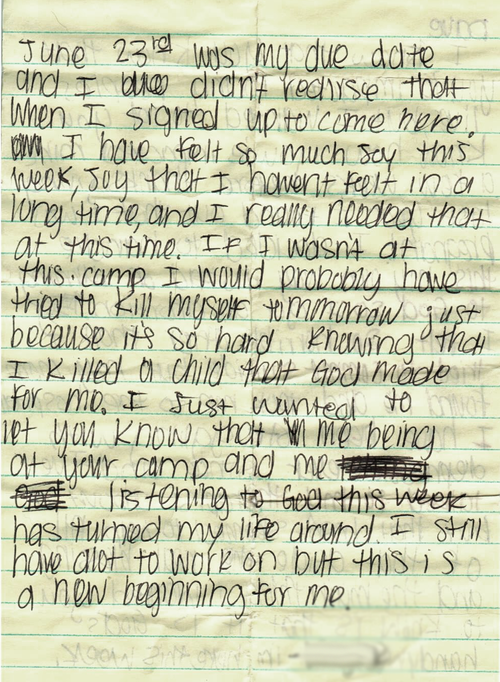 June 23rd was my due date
and I didn't realise that
when I signed up to come here.
I have felt so much joy this
week, joy that I havent felt in a
long time, and I really needed that
at this time. If I wasn't at
this camp I would probably have
tried to kill myself tommorrow just
because it's so hard knowing that
I killed a child that God made
for me. I just wanted to
let you know that me being
at your camp and me
listening to God this week
has turned my life around. I still
have alot to work on but this is
a new beginning for me.